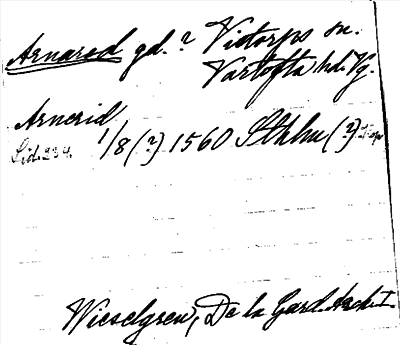 Arnarod gd.? Vistorps sn.
Vartofta hd. Vg.
Arnerid
Lid. 234. 1/8 (?) 1560 Sthlm (?)
Wieselgren, De la Gard. Arch. I.